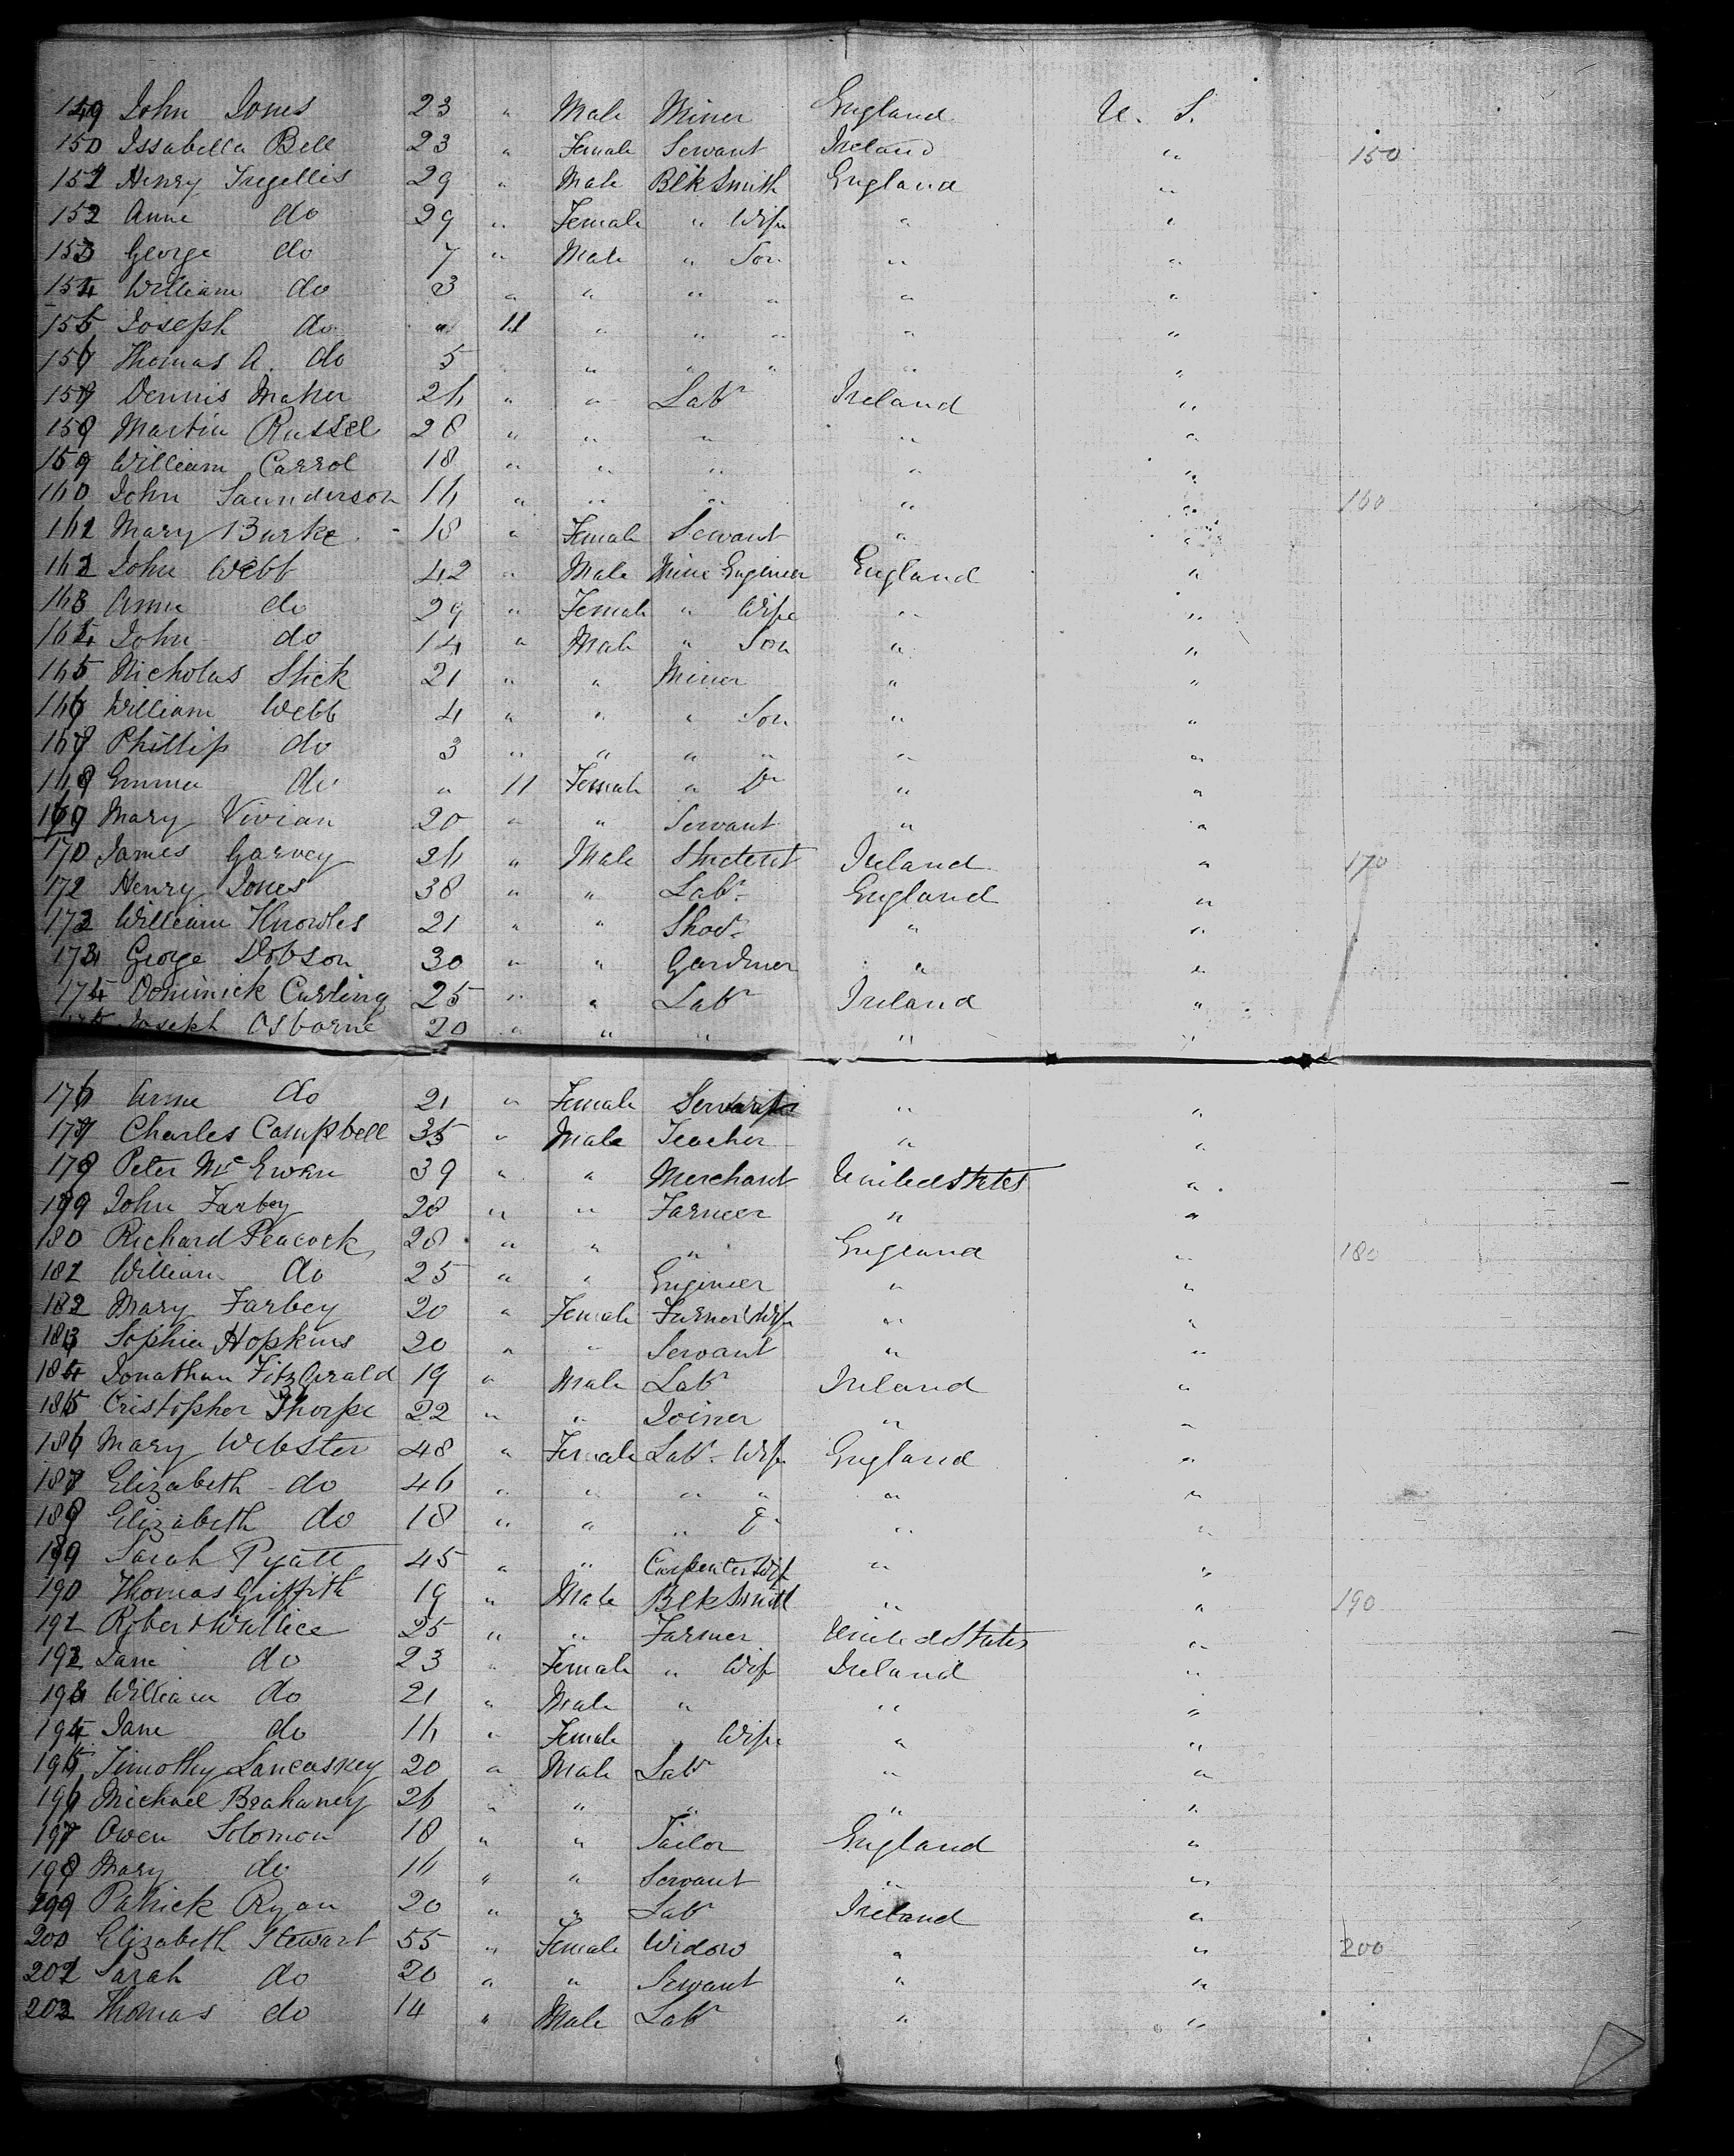 149 John Jones 23 " Male Miner England U. S.
150 Issabella Bell 23 " Female Servant Ireland " 150
151 Henry Tregellis 29 " Male BlkSmith England "
152 Anne do 29 " Female " Wife " "
153 George do 7 " Male " Son " "
154 William do 3 " " " " " "
155 Joseph do " 11 " " " " "
156 Thomas A. do 5 " " " " " "
157 Dennis Maher 26 " " Labr Ireland "
158 Martin Russel 28 " " " " "
159 William Carrol 18 " " " " "
160 John Saunderson 16 " " " " " 160
161 Mary Burke 18 " Female Servant " "
162 John Webb 42 " Male Mine Engineer England "
163 Anne do 29 " Female " Wife " "
164 John do 14 " Male " Son " "
165 Nicholas Slick 21 " " Miner " "
166 William Webb 4 " " " Son " "
167 Phillip do 3 " " " " " "
168 Emma do " 11 Female " Dr " "
169 Mary Vivian 20 " " Servant " "
170 James Garvey 26 " Male Student Ireland " 170
172 Henry Jones 38 " " Labr England "
172 William Knowles 21 " " " "
173 George Dobson 30 " " Gardner " "
174 Dominick Curling 25 " " Labr Ireland "
Joseph Osborne 20 " " " " "
176 Anne do 21 " Female Servant " "
177 Charles Campbell 35 " Male Teacher " "
178 Peter McEwen 39 " " Merchant United States "
179 John Farbey 28 " " Farmer " "
180 Richard Peacock 28 " " " England " 180
181 William do 25 " " Engineer " "
182 Mary Farbey 20 " Female Farmer Wife " "
183 Sophia Hopkins 20 " " Servant " "
184 Jonathan FitzGerald 19 " Male Labr Ireland "
185 Cristopher Thorpe 22 " " Joiner " "
186 Mary Webster 48 " Female Labr Wife England "
187 Elizabeth do 46 " " " " " "
188 Elizabeth do 18 " " " " "
189 Sarah Pyatt 45 " " Carpenters Wife " "
190 Thomas Griffith 19 " Male BlkSmith " " 190
191 Robert Wallice 25 " " Farmer United States "
192 Jane do 23 " Female " Wife Ireland "
193 William do 21 " Male " " "
194 Jane do 16 " Female " Wife " "
195 Timothy Lancaskey 20 " Male Labr " "
196 Michael Brahaney 26 " " " " "
197 Owen Solomon 18 " " Tailor England "
198 Mary do 16 " " Servant " "
199 Patrick Ryan 20 " " Labr Ireland "
200 Elizabeth Stewart 55 " Female Widow " " 200
201 Sarah do 20 " " Servant " "
202 Thomas do 14 " Male Labr " "